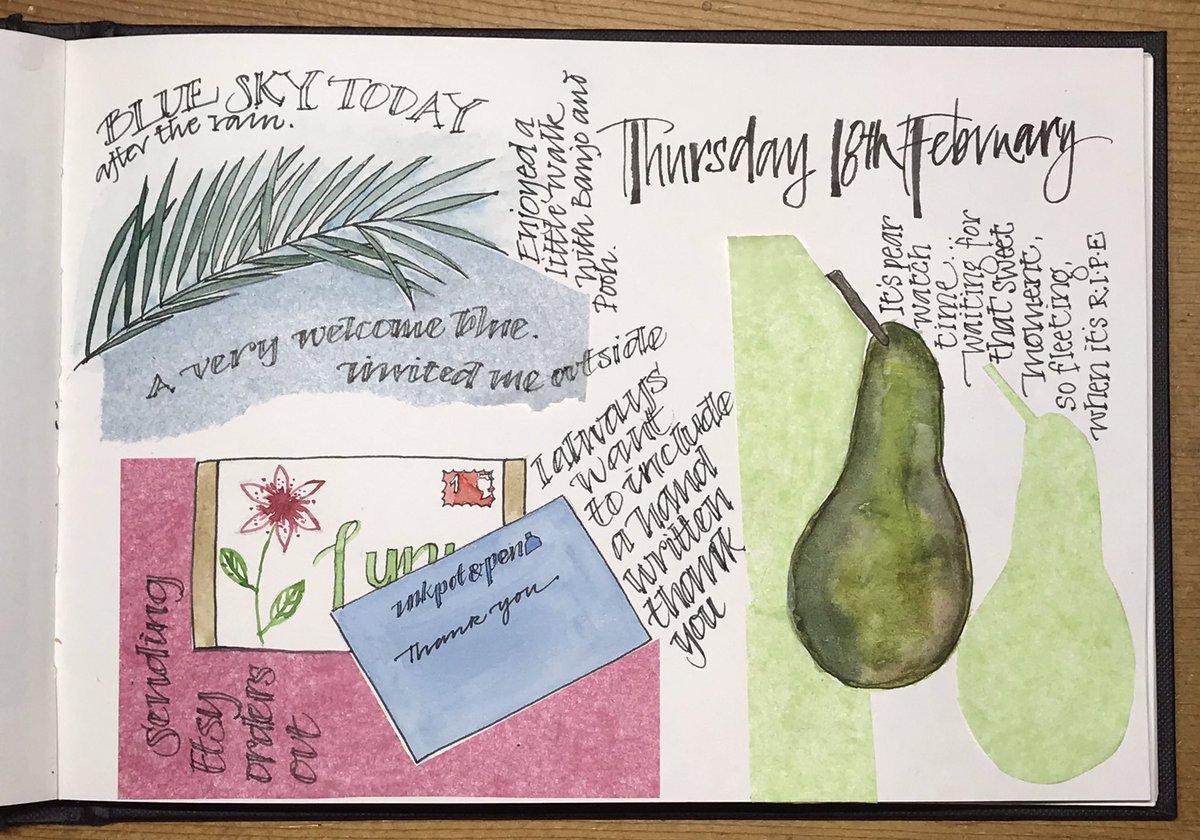 BLUE SKY TODAY
after the rain.
Enjoyed a
little walk
with Banjo and
Pooh.
A very welcome blue.
invited me outside
Thursday 18th February
It's pear
watch
time...
waiting for
that sweet
moment,
so fleeting,
when it's R.I.P.E
I always
want
to include
a hand
written
thank
you
1
inkpot&pen
Thank you
Sending
Etsy
orders
out